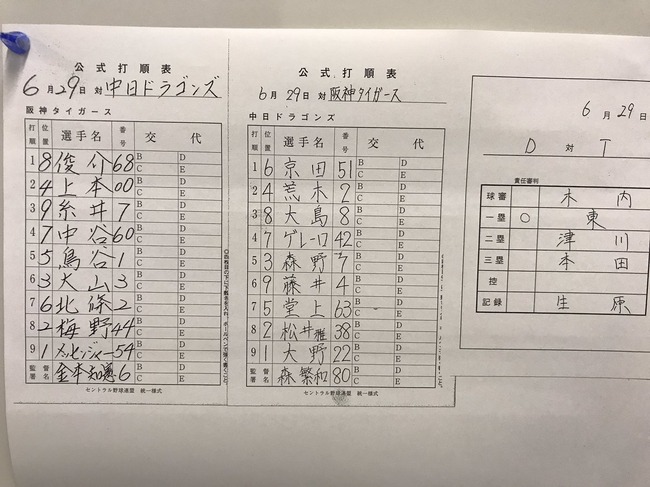 公式打順表
6月29日 対 中日ドラゴンズ
阪神タイガース
打順 位置 選手名 番号 交代
1 8 俊介 68 B D C E
2 4 上本 00 B D C E
3 9 糸井 7 B D C E
4 7 中谷 60 B D C E
5 5 鳥谷 1 B D C E
6 3 大山 3 B D C E
7 6 北條 2 B D C E
8 2 梅野 44 B D C E
9 1 メッセンジャー 54 B D C E
監督署名 金本知憲 6 B D C E
セントラル野球連盟 統一様式
公式打順表
6月29日 対 阪神タイガース
中日ドラゴンズ
打順 位置 選手名 番号 交代
1 6 京田 51 B D C E
2 4 荒木 2 B D C E
3 8 大島 8 B D C E
4 7 ゲレーロ 42 B D C E
5 3 森野 7 B D C E
6 9 藤井 4 B D C E
7 5 堂上 63 B D C E
8 2 松井雅 38 B D C E
9 1 大野 22 B D C E
監督署名 森繁和 80 B D C E
セントラル野球連盟 統一様式
6月29
D 対 T
責任審判
球審 木内
一塁 ○ 東
二塁 津川
三塁 本田
控
記録 生原